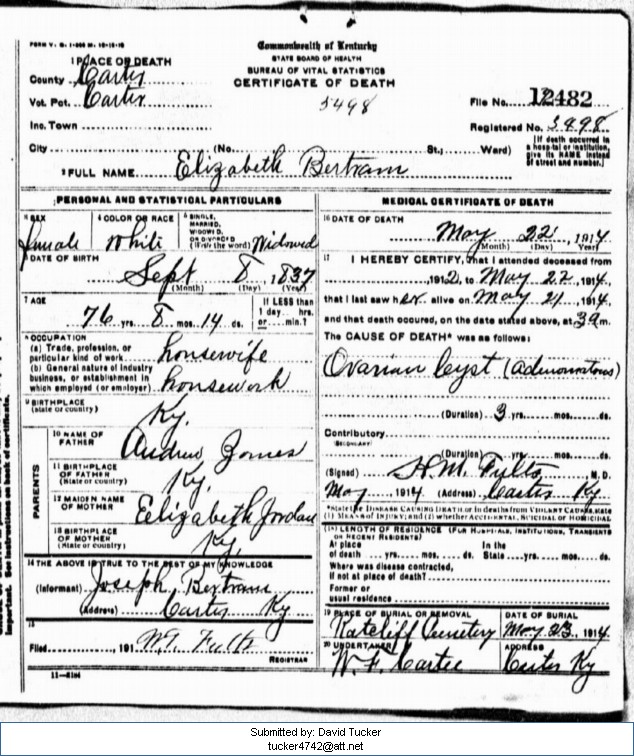 FORM V. S. 1
Commonwealth of Kentucky
STATE BOARD OF HEALTH
BUREAU OF VITAL STATISTICS
CERTIFICATE OF DEATH
1 PLACE OF DEATH
County Carter
Vot. Pct. Carter
5498
File No. 12482
Inc. Town
Registered No. 5498
City (No. St.; Ward)
[If death occurred in a hospital or institution, give its NAME instead of street and number.]
2 FULL NAME Elizabeth Bertram
PERSONAL AND STATISTICAL PARTICULARS
3 SEX female
4 COLOR OR RACE White
5 SINGLE, MARRIED, WIDOWED, OR DIVORCED (Write the word) Widowed
6 DATE OF BIRTH
Sept 8, 1837
(Month) (Day) (Year)
7 AGE
76 yrs. 8 mos. 14 ds.
If LESS than 1 day hrs. or min.?
8 OCCUPATION
(a) Trade, profession, or particular kind of work housewife
(b) General nature of industry business, or establishment in which employed (or employer) housework
9 BIRTHPLACE
(State or country) Ky.
PARENTS
10 NAME OF FATHER Andrew Jones
11 BIRTHPLACE OF FATHER (State or country) Ky.
12 MAIDEN NAME OF MOTHER Eelizabeth Jordan
13 BIRTHPLACE OF MOTHER (State or country) Ky.
14 THE ABOVE IS TRUE TO THE BEST OF MY KNOWLEDGE
(Informant) Joseph Bertram
(Address) Carter Ky
15
Filed 191 W. F. Fults
REGISTRAR
MEDICAL CERTIFICATE OF DEATH
16 DATE OF DEATH
May 22, 1914
(Month) (Day) (Year)
17 I HEREBY CERTIFY, that I attended deceased from
1912, to May 22, 1914,
that I last saw her alive on May 21, 1914,
and that death occured, on the date stated above, at 3 a m.
The CAUSE OF DEATH* was as follows:
Ovarian Cyst (adenomatous)
(Duration) 3 yrs. mos. ds.
Contributory
(SECONDARY)
(Duration) yrs. mos. ds.
(Signed) H. M. Fults M. D.
May, 1914 (Address) Carter Ky
*State the DISEASE CAUSING DEATH, or in deaths from VIOLENT CAUSES, state (1) MEANS OF INJURY; and (2) whether ACCIDENTAL, SUICIDAL or HOMICIDAL
18 LENGTH OF RESIDENCE (FOR HOSPITALS, INSTITUTIONS, TRANSIENTS OR RECENT RESIDENTS)
At place of death yrs. mos. ds. In the State yrs. mos. ds.
Where was disease contracted, if not at place of death?
Former or usual residence
19 PLACE OF BURIAL OR REMOVAL Ratcliff Cemetery
DATE OF BURIAL May 23, 1914
20 UNDERTAKER W. F. Cartee
ADDRESS Carter Ky
important. See instructions on back of certificate.
Submitted by: David Tucker
tucker4742@att.net